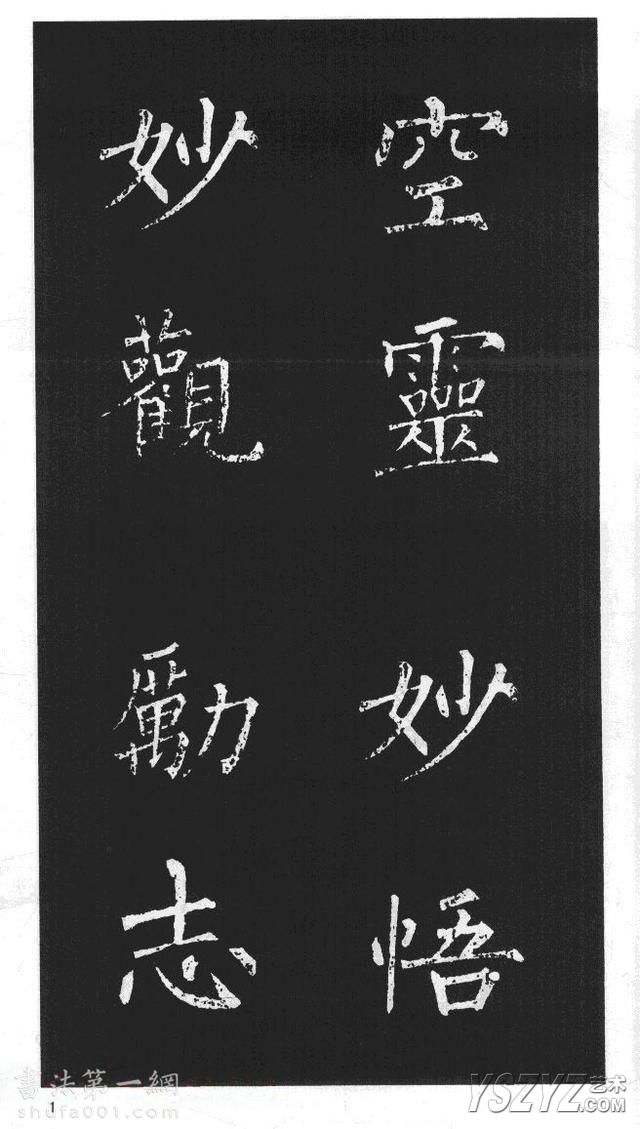 空靈妙悟
妙觀勵志
書法第一網
shufa001.com
1
YSZYZ艺术
.COM